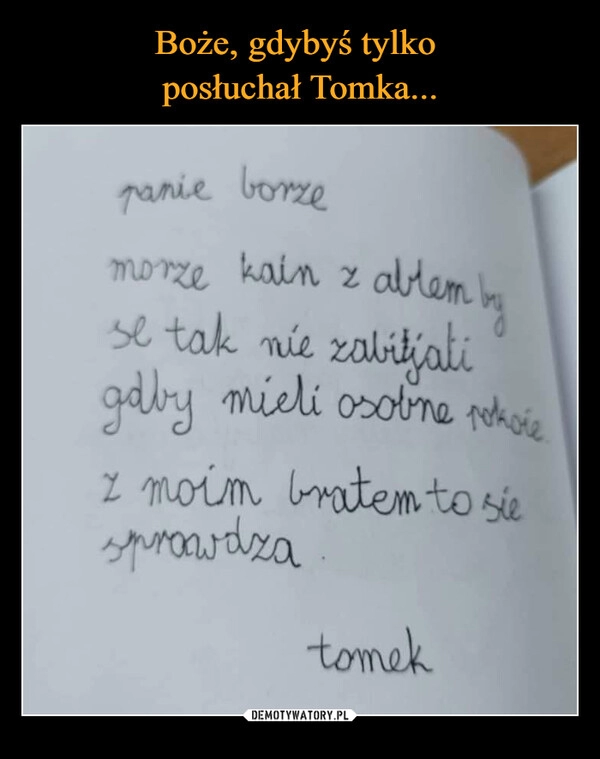 Boże, gdybyś tylko
posłuchał Tomka...
panie borze
morze kain z ablem by
se tak nie zabitjali
gdby mieli osobne pokoie
z moim bratem to sie
sprawdza.
tomek
DEMOTYWATORY.PL